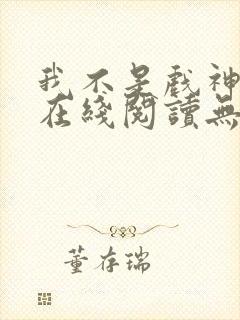 我不是戲神
在綫閱讀無
董存瑞